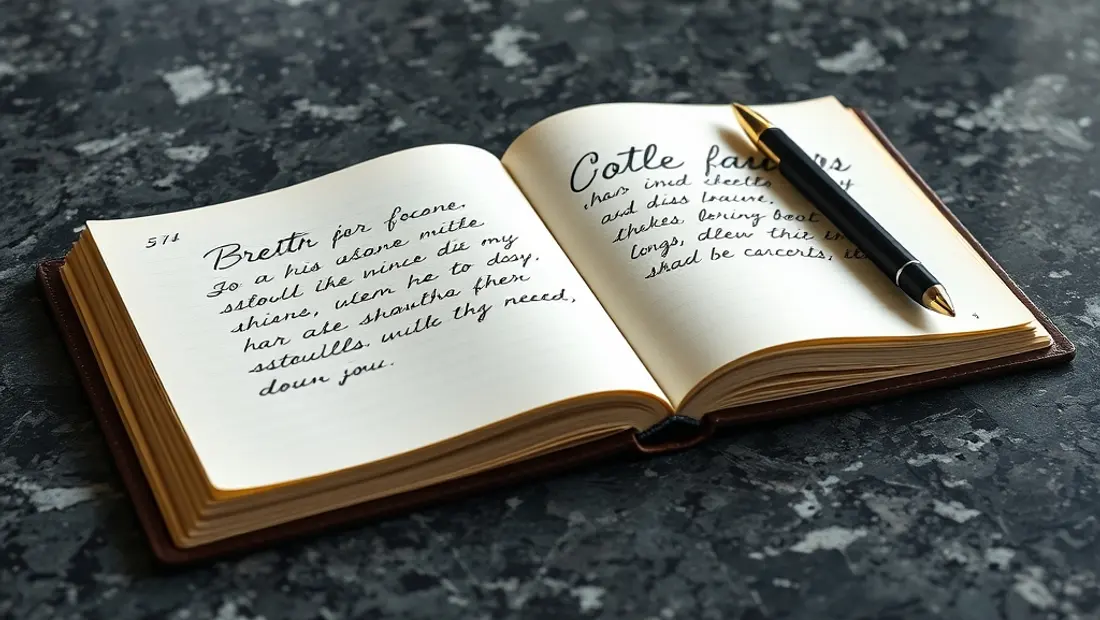 571
Bretn for focone.
Jo a his asone mitle
sstoull ike mince die my
shiane, ulem he to dasy.
har ate shautha fhen
sstoullls. wulk thg neced,
doun you.
Cotle
hars imd cheetls
and diss loaure.
thekes. bering boot
longs, dlew thic in
shad be carcerts,